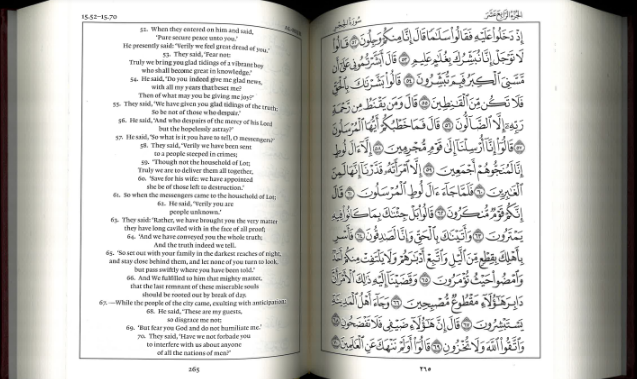 15.52–15.70
52. When they entered on him and said,
'Pure secure peace unto you.'
He presently said: 'Verily we feel great dread of you.'
53. They said, 'Fear not:
Truly we bring you glad tidings of a vibrant boy
who shall become great in knowledge.'
54. He said, 'Do you indeed give me glad news,
with all my years that beset me?
Then of what may you be giving me joy?'
55. They said, 'We have given you glad tidings of the truth;
So be not of those who despair.'
56. He said, 'And who despairs of the mercy of his Lord
but the hopelessly astray?'
57. He said, 'So what is it you have to tell, O messengers?'
58. They said, 'Verily we have been sent
to a people steeped in crimes;
59. 'Though not the household of Lot;
Truly we are to deliver them all together,
60. 'Save for his wife: we have appointed
she be of those left to destruction.'
61. So when the messengers came to the household of Lot;
62. He said, 'Verily you are
people unknown.'
63. They said: 'Rather, we have brought you the very matter
they have long caviled with in the face of all proof;
64. 'And we have conveyed you the whole truth;
And the truth indeed we tell.
65. 'So set out with your family in the darkest reaches of night,
and stay close behind them, and let none of you turn to look,
but pass swiftly where you have been told.'
66. And We fulfilled so him that mighty matter,
that the last remnant of these miserable souls
should be rooted out by break of day.
67.—While the people of the city came, exulting with anticipation;
68. He said, 'These are my guests,
so disgrace me not;
69. 'But fear you God and do not humiliate me.'
70. They said, 'Have we not forbade you
to interfere with us about anyone
of all the nations of men?'
265
الجزء الرابع عشر
سورة الحجر
إِذْ دَخَلُوا عَلَيْهِ فَقَالُوا سَلَٰمًا قَالَ إِنَّا مِنكُمْ وَجِلُونَ ٥٢ قَالُوا
لَا تَوْجَلْ إِنَّا نُبَشِّرُكَ بِغُلَٰمٍ عَلِيمٍ ٥٣ قَالَ أَبَشَّرْتُمُونِي عَلَىٰ أَن
مَّسَّنِيَ الْكِبَرُ فَبِمَ تُبَشِّرُونَ ٥٤ قَالُوا بَشَّرْنَٰكَ بِالْحَقِّ
فَلَا تَكُن مِّنَ الْقَٰنِطِينَ ٥٥ قَالَ وَمَن يَقْنَطُ مِن رَّحْمَةِ
رَبِّهِ إِلَّا الضَّالُّونَ ٥٦ قَالَ فَمَا خَطْبُكُمْ أَيُّهَا الْمُرْسَلُونَ
٥٧ قَالُوا إِنَّا أُرْسِلْنَا إِلَىٰ قَوْمٍ مُّجْرِمِينَ ٥٨ إِلَّا ءَالَ لُوطٍ
إِنَّا لَمُنَجُّوهُمْ أَجْمَعِينَ ٥٩ إِلَّا امْرَأَتَهُ قَدَّرْنَا إِنَّهَا لَمِنَ
الْغَٰبِرِينَ ٦٠ فَلَمَّا جَاءَ ءَالَ لُوطٍ الْمُرْسَلُونَ ٦١ قَالَ
إِنَّكُمْ قَوْمٌ مُّنكَرُونَ ٦٢ قَالُوا بَلْ جِئْنَٰكَ بِمَا كَانُوا فِيهِ
يَمْتَرُونَ ٦٣ وَأَتَيْنَٰكَ بِالْحَقِّ وَإِنَّا لَصَٰدِقُونَ ٦٤ فَأَسْرِ
بِأَهْلِكَ بِقِطْعٍ مِّنَ الَّيْلِ وَاتَّبِعْ أَدْبَٰرَهُمْ وَلَا يَلْتَفِتْ مِنكُمْ أَحَدٌ
وَامْضُوا حَيْثُ تُؤْمَرُونَ ٦٥ وَقَضَيْنَا إِلَيْهِ ذَٰلِكَ الْأَمْرَ أَنَّ
دَابِرَ هَٰؤُلَاءِ مَقْطُوعٌ مُّصْبِحِينَ ٦٦ وَجَاءَ أَهْلُ الْمَدِينَةِ
يَسْتَبْشِرُونَ ٦٧ قَالَ إِنَّ هَٰؤُلَاءِ ضَيْفِي فَلَا تَفْضَحُونِ ٦٨
وَاتَّقُوا اللَّهَ وَلَا تُخْزُونِ ٦٩ قَالُوا أَوَلَمْ نَنْهَكَ عَنِ الْعَٰلَمِينَ ٧٠
٢٦٥